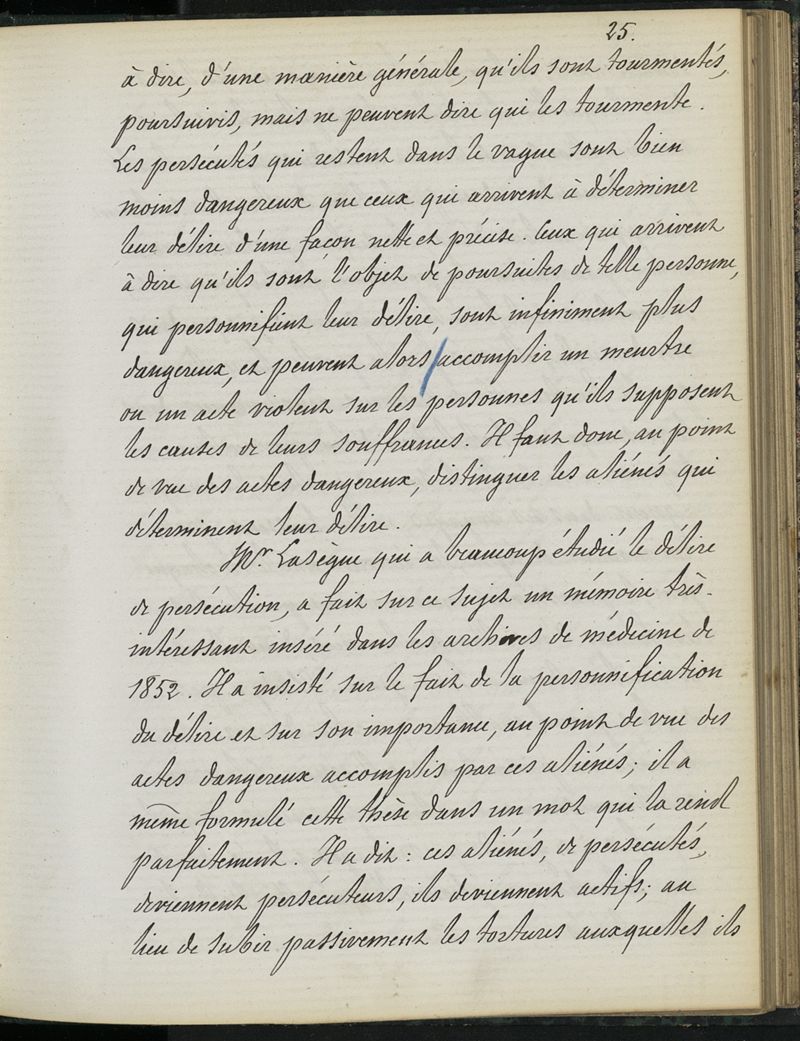 25.
à dire, d'une manière générale, qu'ils sont tourmentés,
poursuivis, mais ne peuvent dire qui les tourmente.
Les persécutés qui restent dans le vague sont bien
moins dangereux que ceux qui arrivent à déterminer
leur délire d'une façon nette et précise. Ceux qui arrivent
à dire qu'ils sont l'objet de poursuites de telle personne,
qui personnifient leur délire, sont infiniment plus
dangereux, et peuvent alors/accomplir un meurtre
ou un acte violent sur les personnes qu'ils supposent
les causes de leurs souffrances. Il faut donc, au point
de vue des actes dangereux, distinguer les aliénés qui
déterminent leur délire.
Mr. Lasègue qui a beaucoup étudié le délire
de persécution, a fait sur ce sujet un mémoire très-
intéressant inséré dans les archives de médecine de
1852. Il a insisté sur le fait de la personnification
du délire et sur son importance, au point de vue des
actes dangereux accomplis par ces aliénés; il a
même formulé cette thèse dans un mot qui la rend
parfaitement. Il a dit: ces aliénés, de persécutés,
deviennent persécuteurs, ils deviennent actifs; au
lieu de subir passivement les tortures auxquelles ils